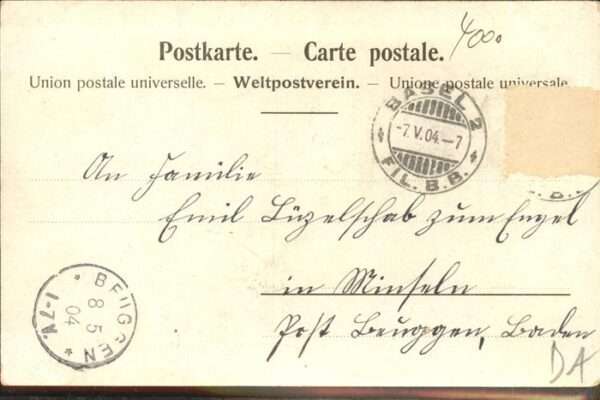 4000
Postkarte. — Carte postale.
Union postale universelle. — Weltpostverein. — Unione postale universale
BASEL 2
-7.V.04.-7
FIL. B.B.
An Familie
Emil Lüzelschab zum Engel
in Minseln
Post Beuggen, Baden
BEUGGEN
8 5
04
DA